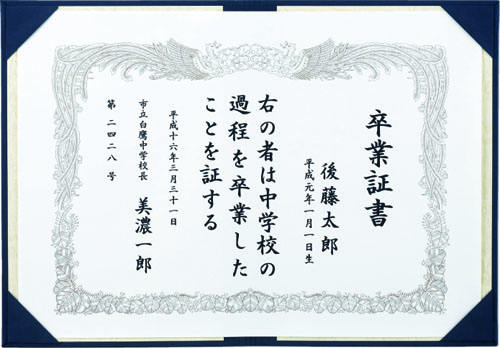 卒業証書
後藤太郎
平成元年一月一日生
右の者は中学校の
過程を卒業した
ことを証する
平成十六年三月三十一日
市立白鷹中学校長
美濃一郎
第 二四二八 号